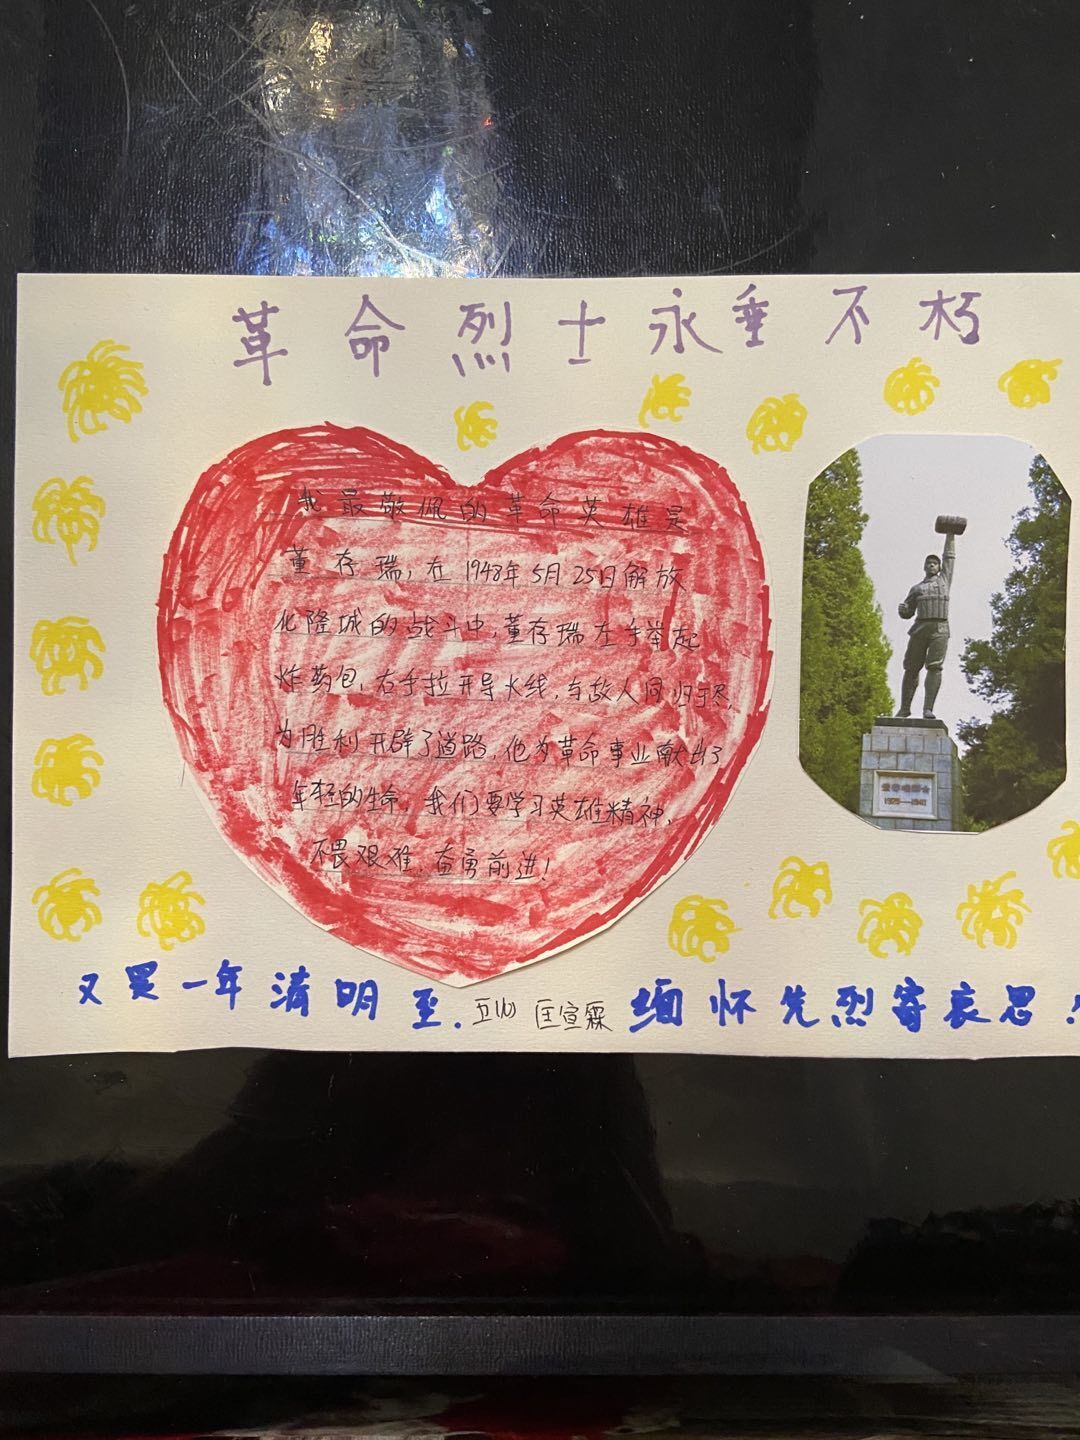 革命烈士永垂不朽
我最敬佩的革命英雄是
董存瑞,在1948年5月25日解放
化隆城的战斗中,董存瑞左手举起
炸药包,右手拉开导火线,与敌人同归于尽,
为胜利开辟了道路,他为革命事业献出了
年轻的生命,我们要学习英雄精神,
不畏艰难,奋勇前进!
又是一年清明至. 五(6) 匡宣霖 缅怀先烈寄哀思!